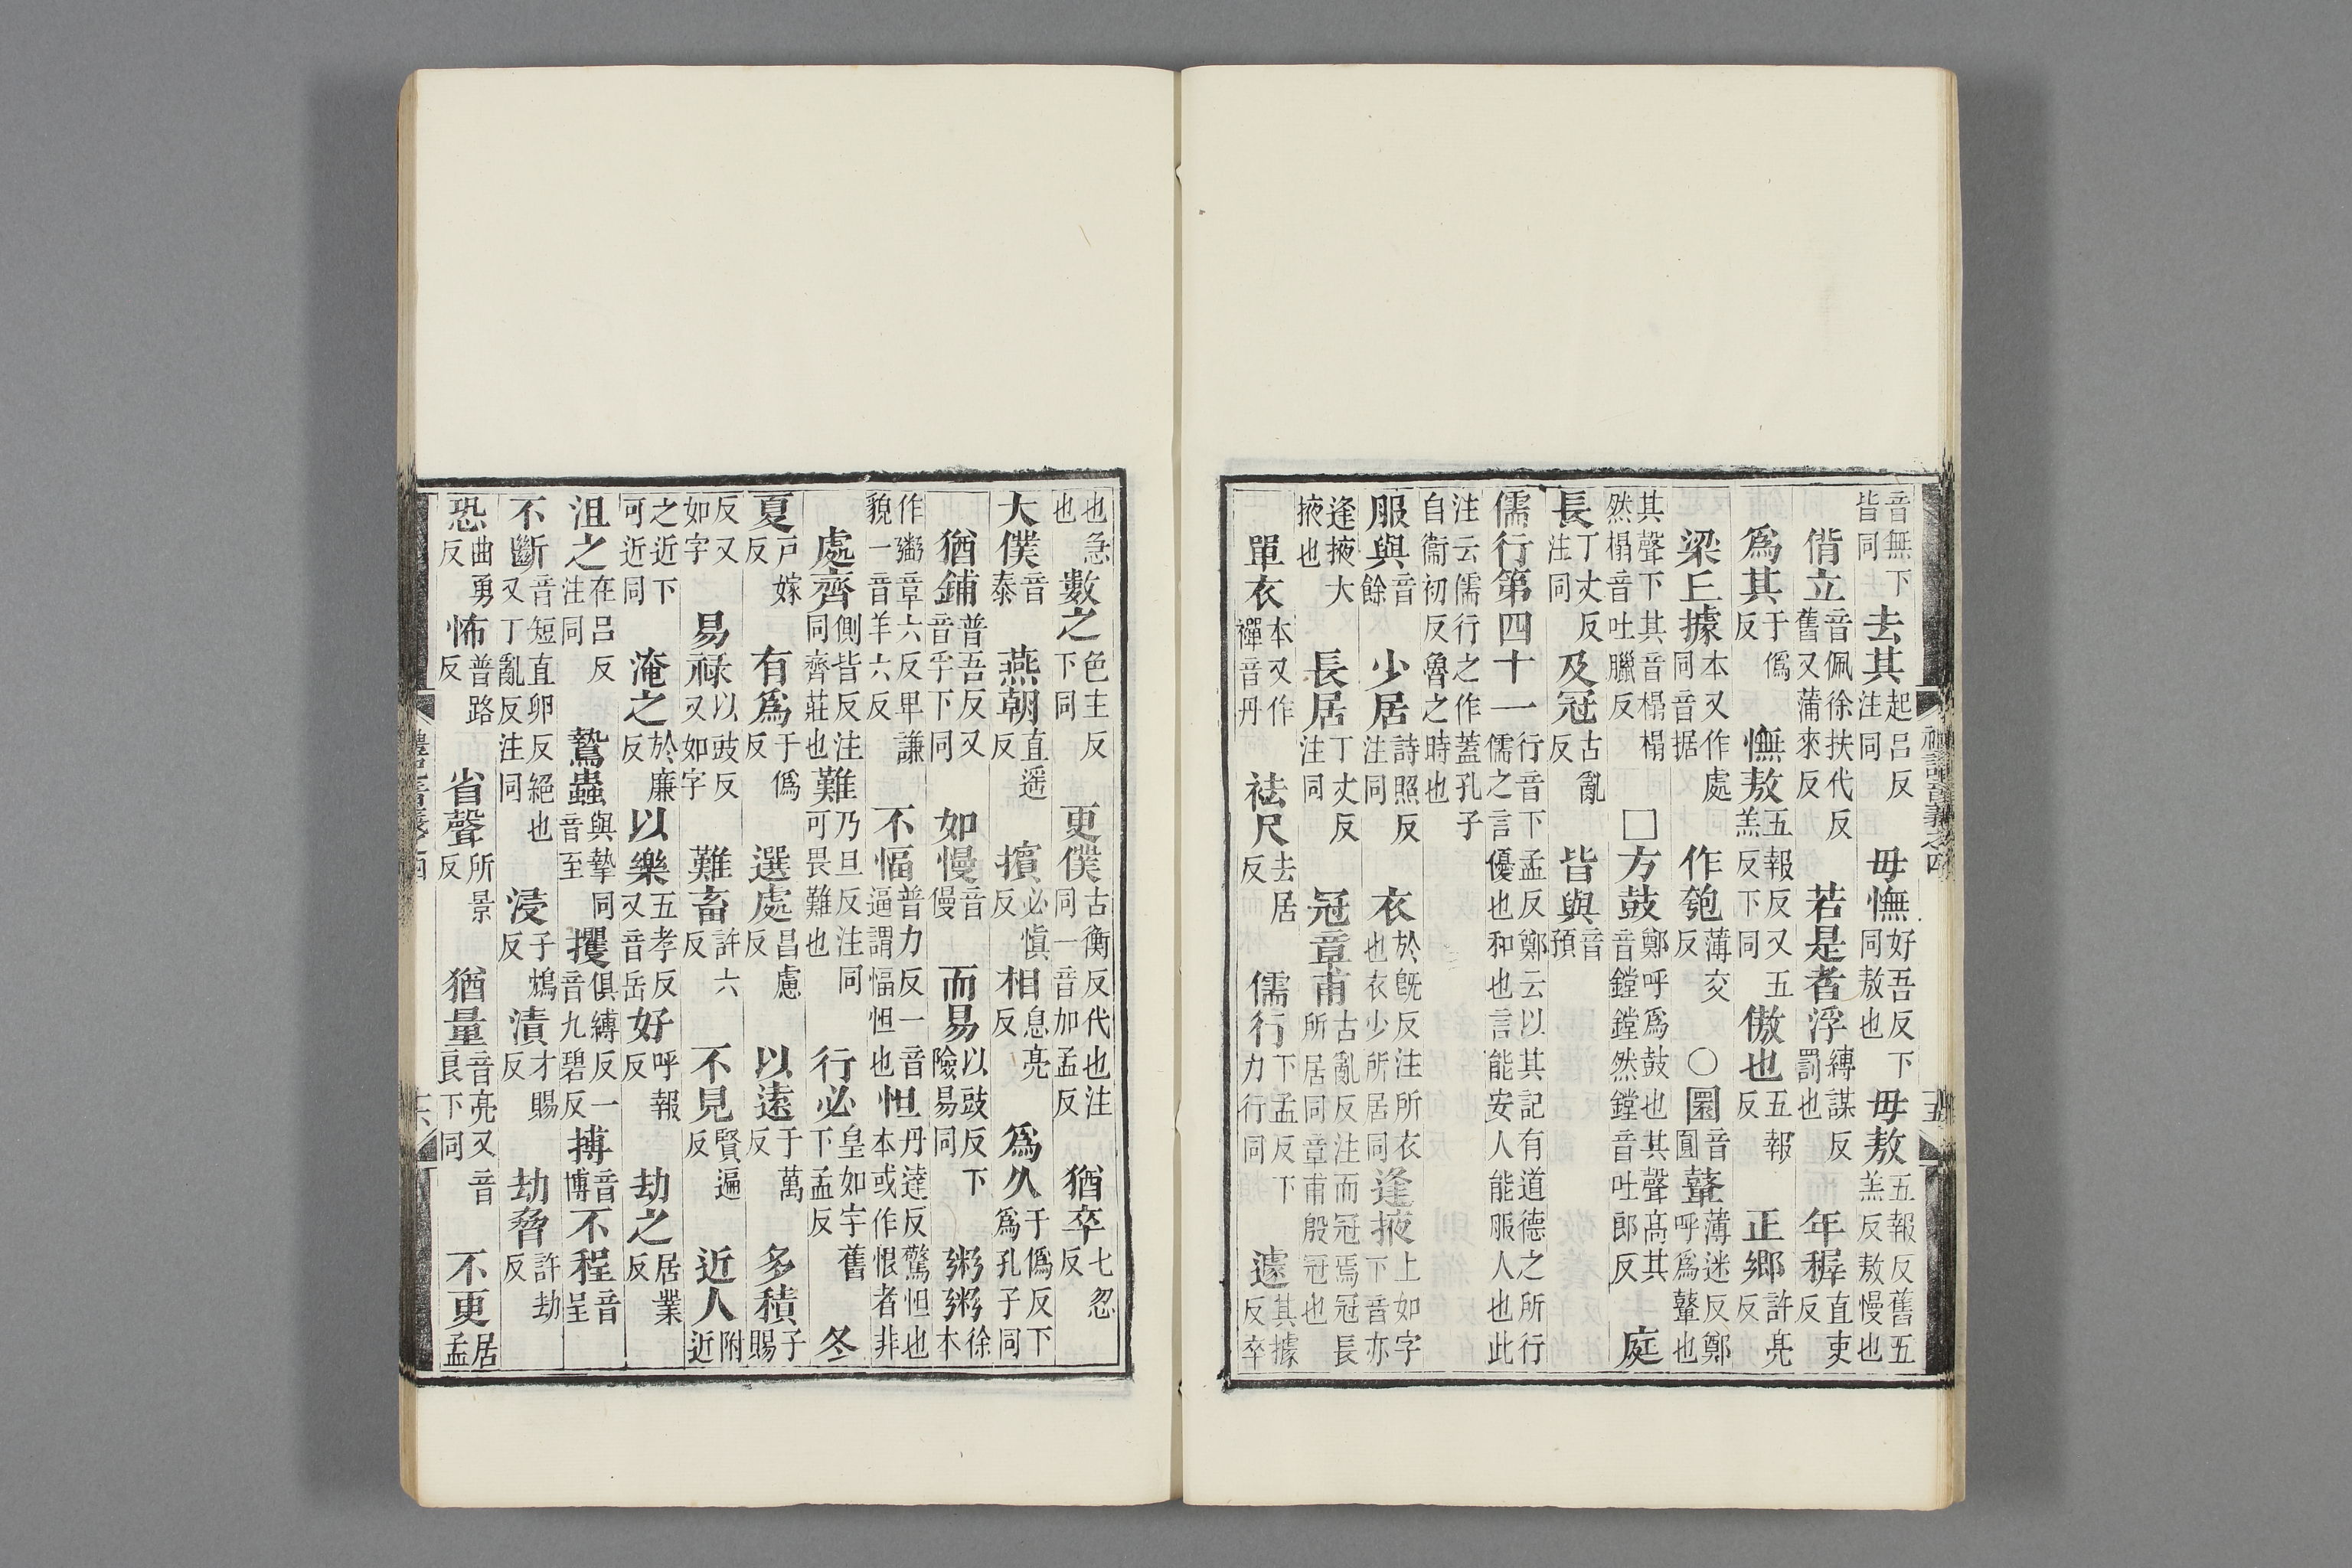 禮記音義之四 十五
音無下皆同去其起呂反注同毋憮好吾反下同敖也毋敖五報反舊五羔反敖慢也
偝立音佩徐扶代反舊又蒲來反若是者浮縛謀反罰也年穉直吏反
為其于僞反憮敖五報反又五羔反下同傲也五報反正鄉許亮反
梁丘據本又作處同音据作匏薄交反〇圜音圓鼙薄迷反鄭呼為鼙也
其聲下其音榻榻然榻音吐臘反□方鼓鄭呼為鼓也其聲高其音鏜鏜然鏜音吐郎反庭
長丁丈反注同及冠古亂反皆與音預
儒行第四十一行音下孟反鄭云以其記有道德之所行儒之言優也和也言能安人能服人也此
注云儒行之作蓋孔子自衞初反魯之時也
服與音餘少居詩照反注同衣於旣反注所衣也衣少所居同逢掖上如字下音亦
逢掖大掖也長居丁丈反注同冠章甫古亂反注而冠焉冠長所居同章甫殷冠也
單衣本又作襌音丹袪尺去居反儒行下孟反下力行同遽其據反卒
也急也數之色主反下同更僕古衡反代也注同一音加孟反猶卒七忽反
大僕音泰燕朝直遥反擯必慎反相息亮反為久于僞反下為孔子同
猶鋪普吾反又音乎下同如慢音慢而易以豉反下險易同粥粥徐木
作鬻章六反卑謙貌一音羊六反不愊普力反一音逼謂愊怛也怛丹達反驚怛也本或作恨者非
處齊側皆反注同齊莊也難乃旦反注同可畏難也行必皇如字舊下孟反冬
夏戶嫁反有為于僞反選處昌慮反以遠于萬反多積子賜
反又如字易祿以豉反又如字難畜許六反不見賢遍反近人附近
之近下可近同淹之於廉反以樂五孝反又音岳好呼報反劫之居業反
沮之在呂反注同鷙蟲與摯同音至攫俱縛反一音九碧反搏音博不程音呈
不斷音短直卵反絕也又丁亂反注同浸子鴆反漬才賜反劫脅許劫反
恐曲勇反怖普路反省聲所景反猶量音亮又音良下同不更居孟
禮記音義之四 十六